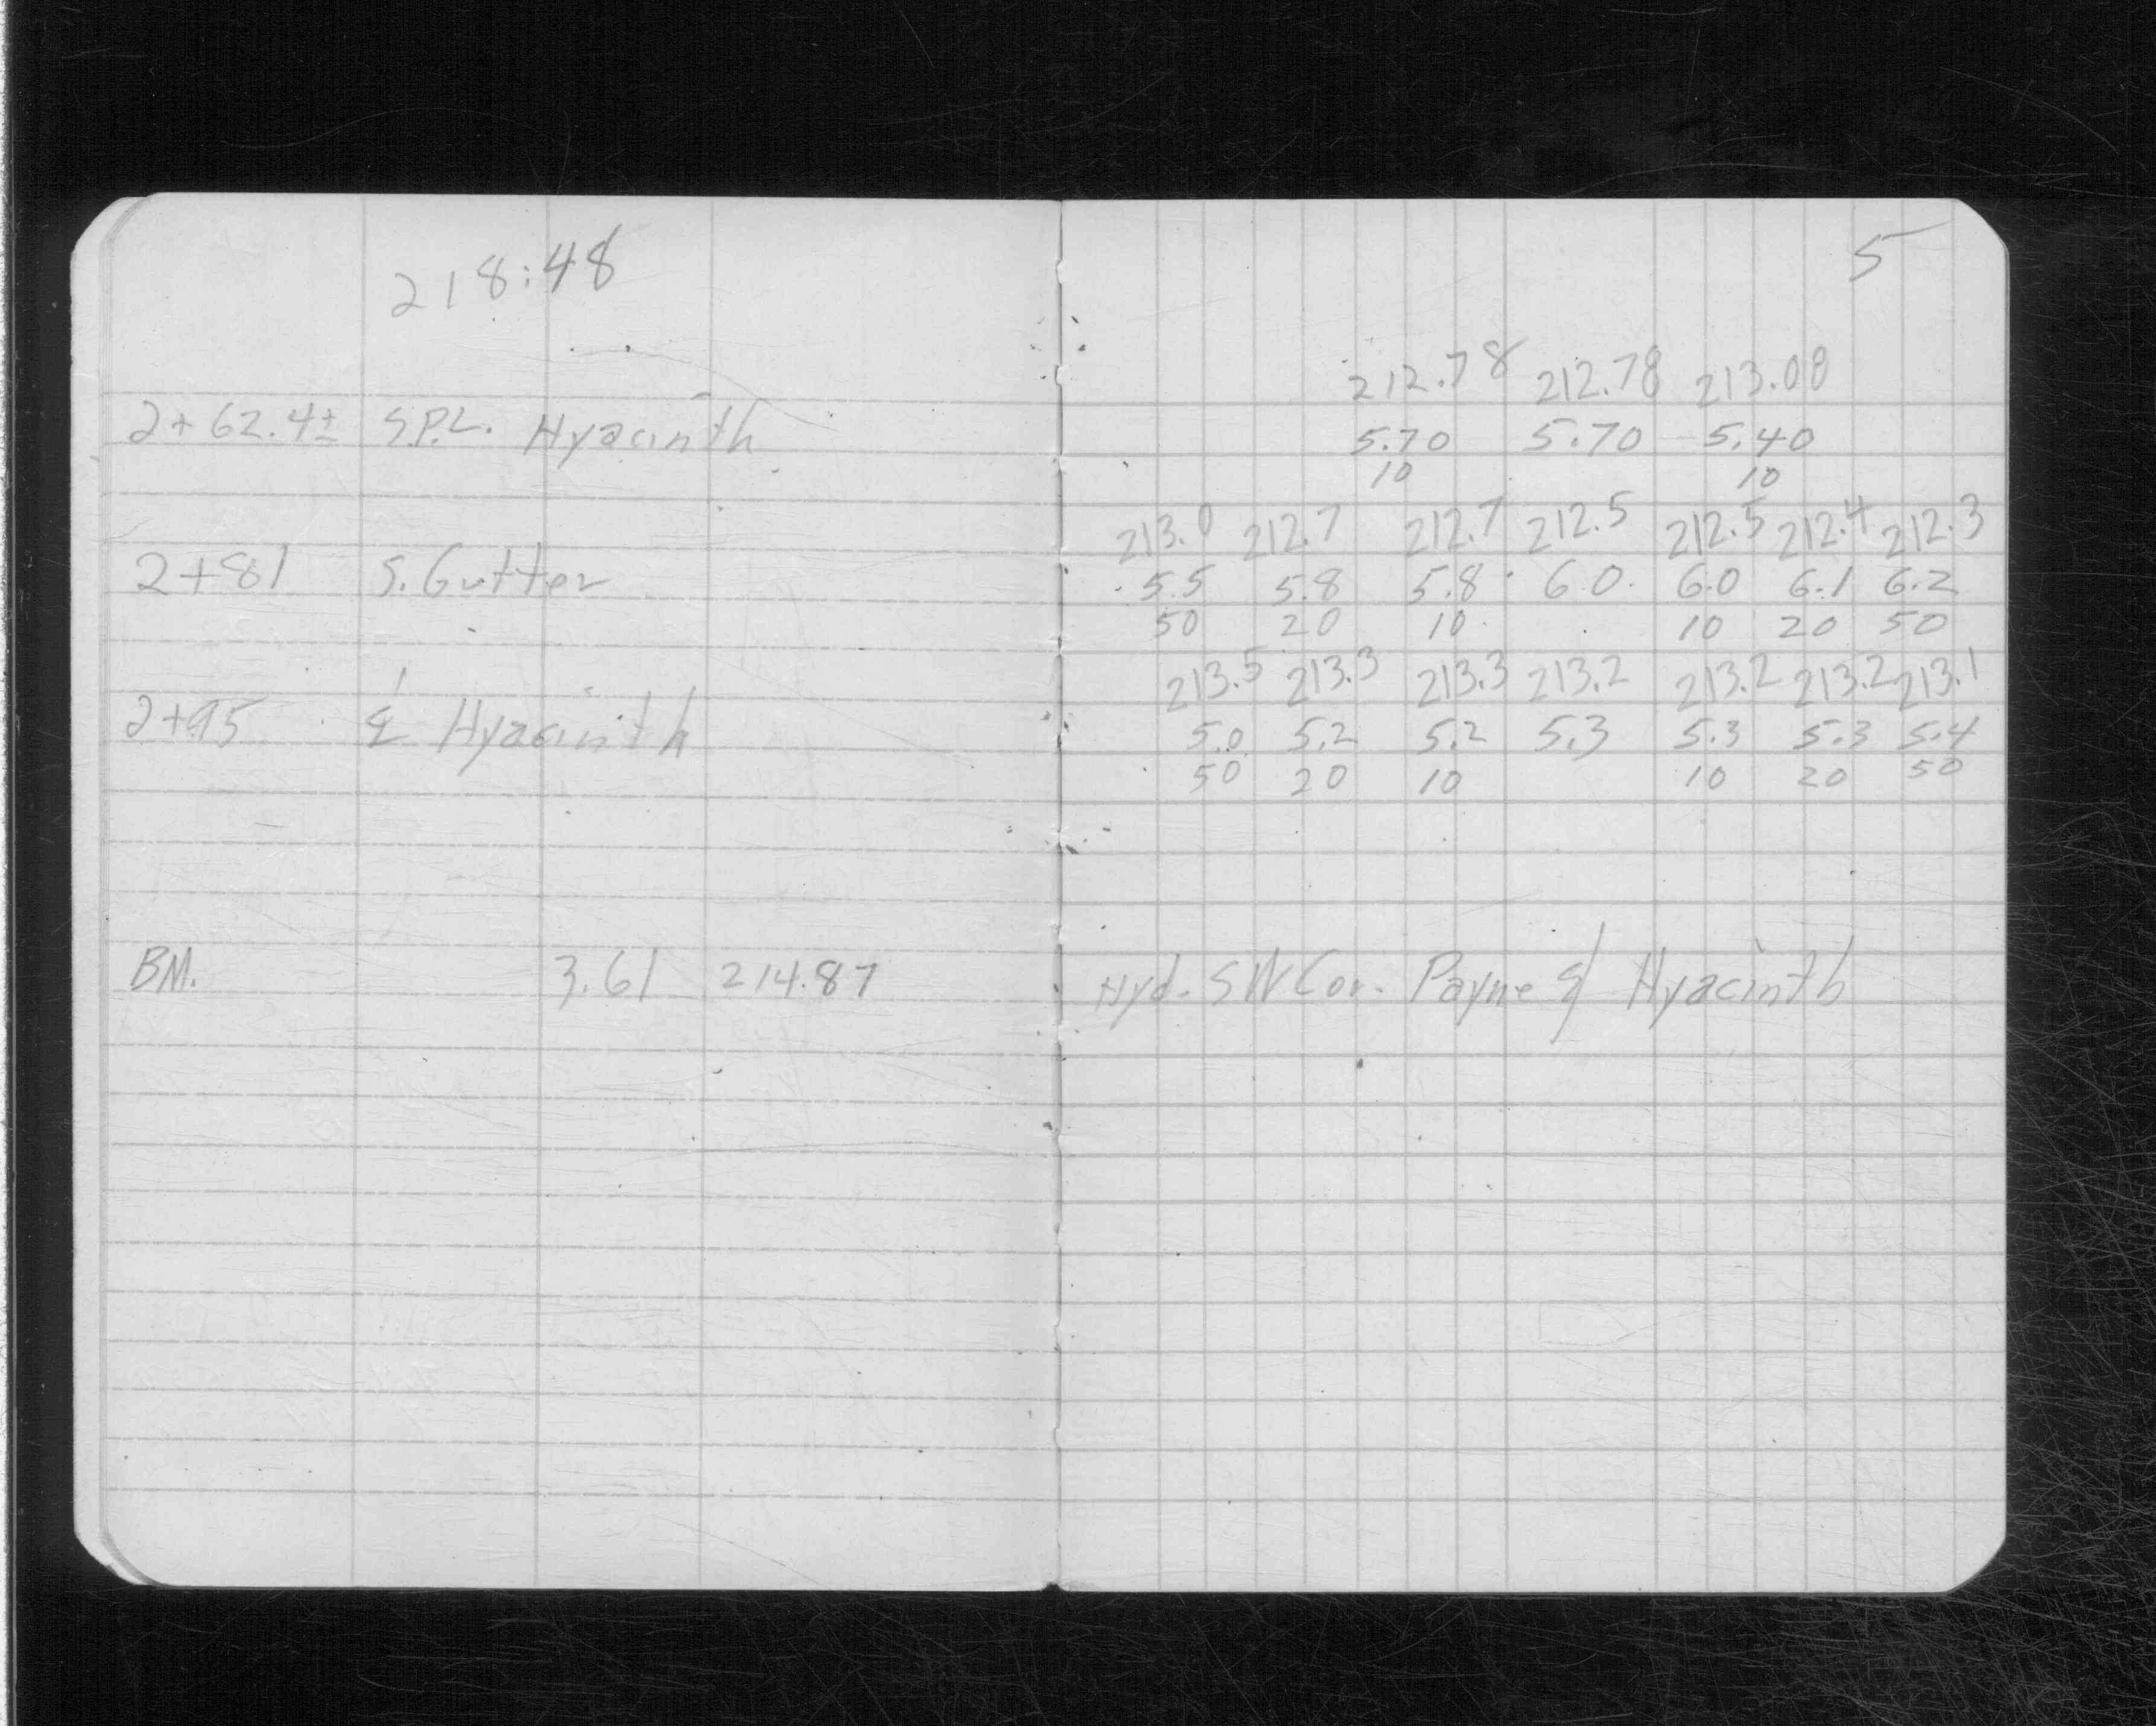 218.48
2+62.4± S.P.L. Hyacinth
2+81 S. Gutter
2+95 ℄ Hyacinth
BM. 3.61 214.87
5
212.78 212.78 213.08
5.70 5.70 5.40
10 10
213.0 212.7 212.7 212.5 212.5 212.4 212.3
5.5 5.8 5.8 6.0 6.0 6.1 6.2
50 20 10 10 20 50
213.5 213.3 213.3 213.2 213.2 213.2 213.1
5.0 5.2 5.2 5.3 5.3 5.3 5.4
50 20 10 10 20 50
Hyd. SW Cor. Payne & Hyacinth